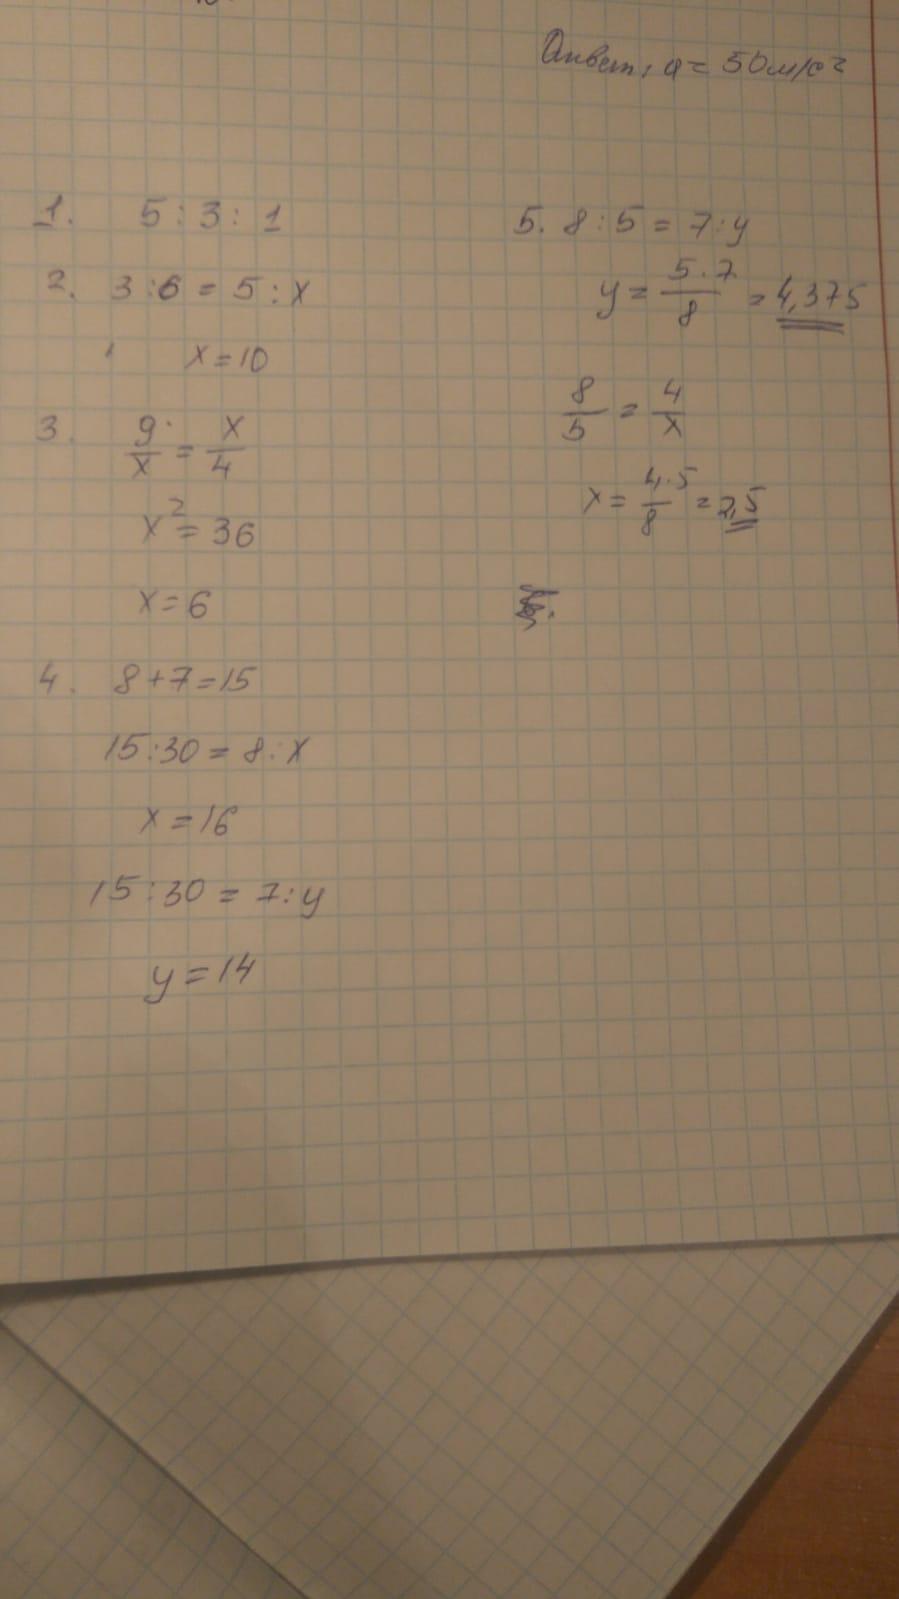 Ответ: a = 50 м/с²
1. 5 : 3 : 1
2. 3 : 6 = 5 : x
x = 10
3. 9/x = x/4
x² = 36
x = 6
4. 8 + 7 = 15
15 : 30 = 8 : x
x = 16
15 : 30 = 7 : y
y = 14
5. 8 : 5 = 7 : y
y = 5·7/8 = 4,375
8/5 = 4/x
x = 4·5/8 = 2,5